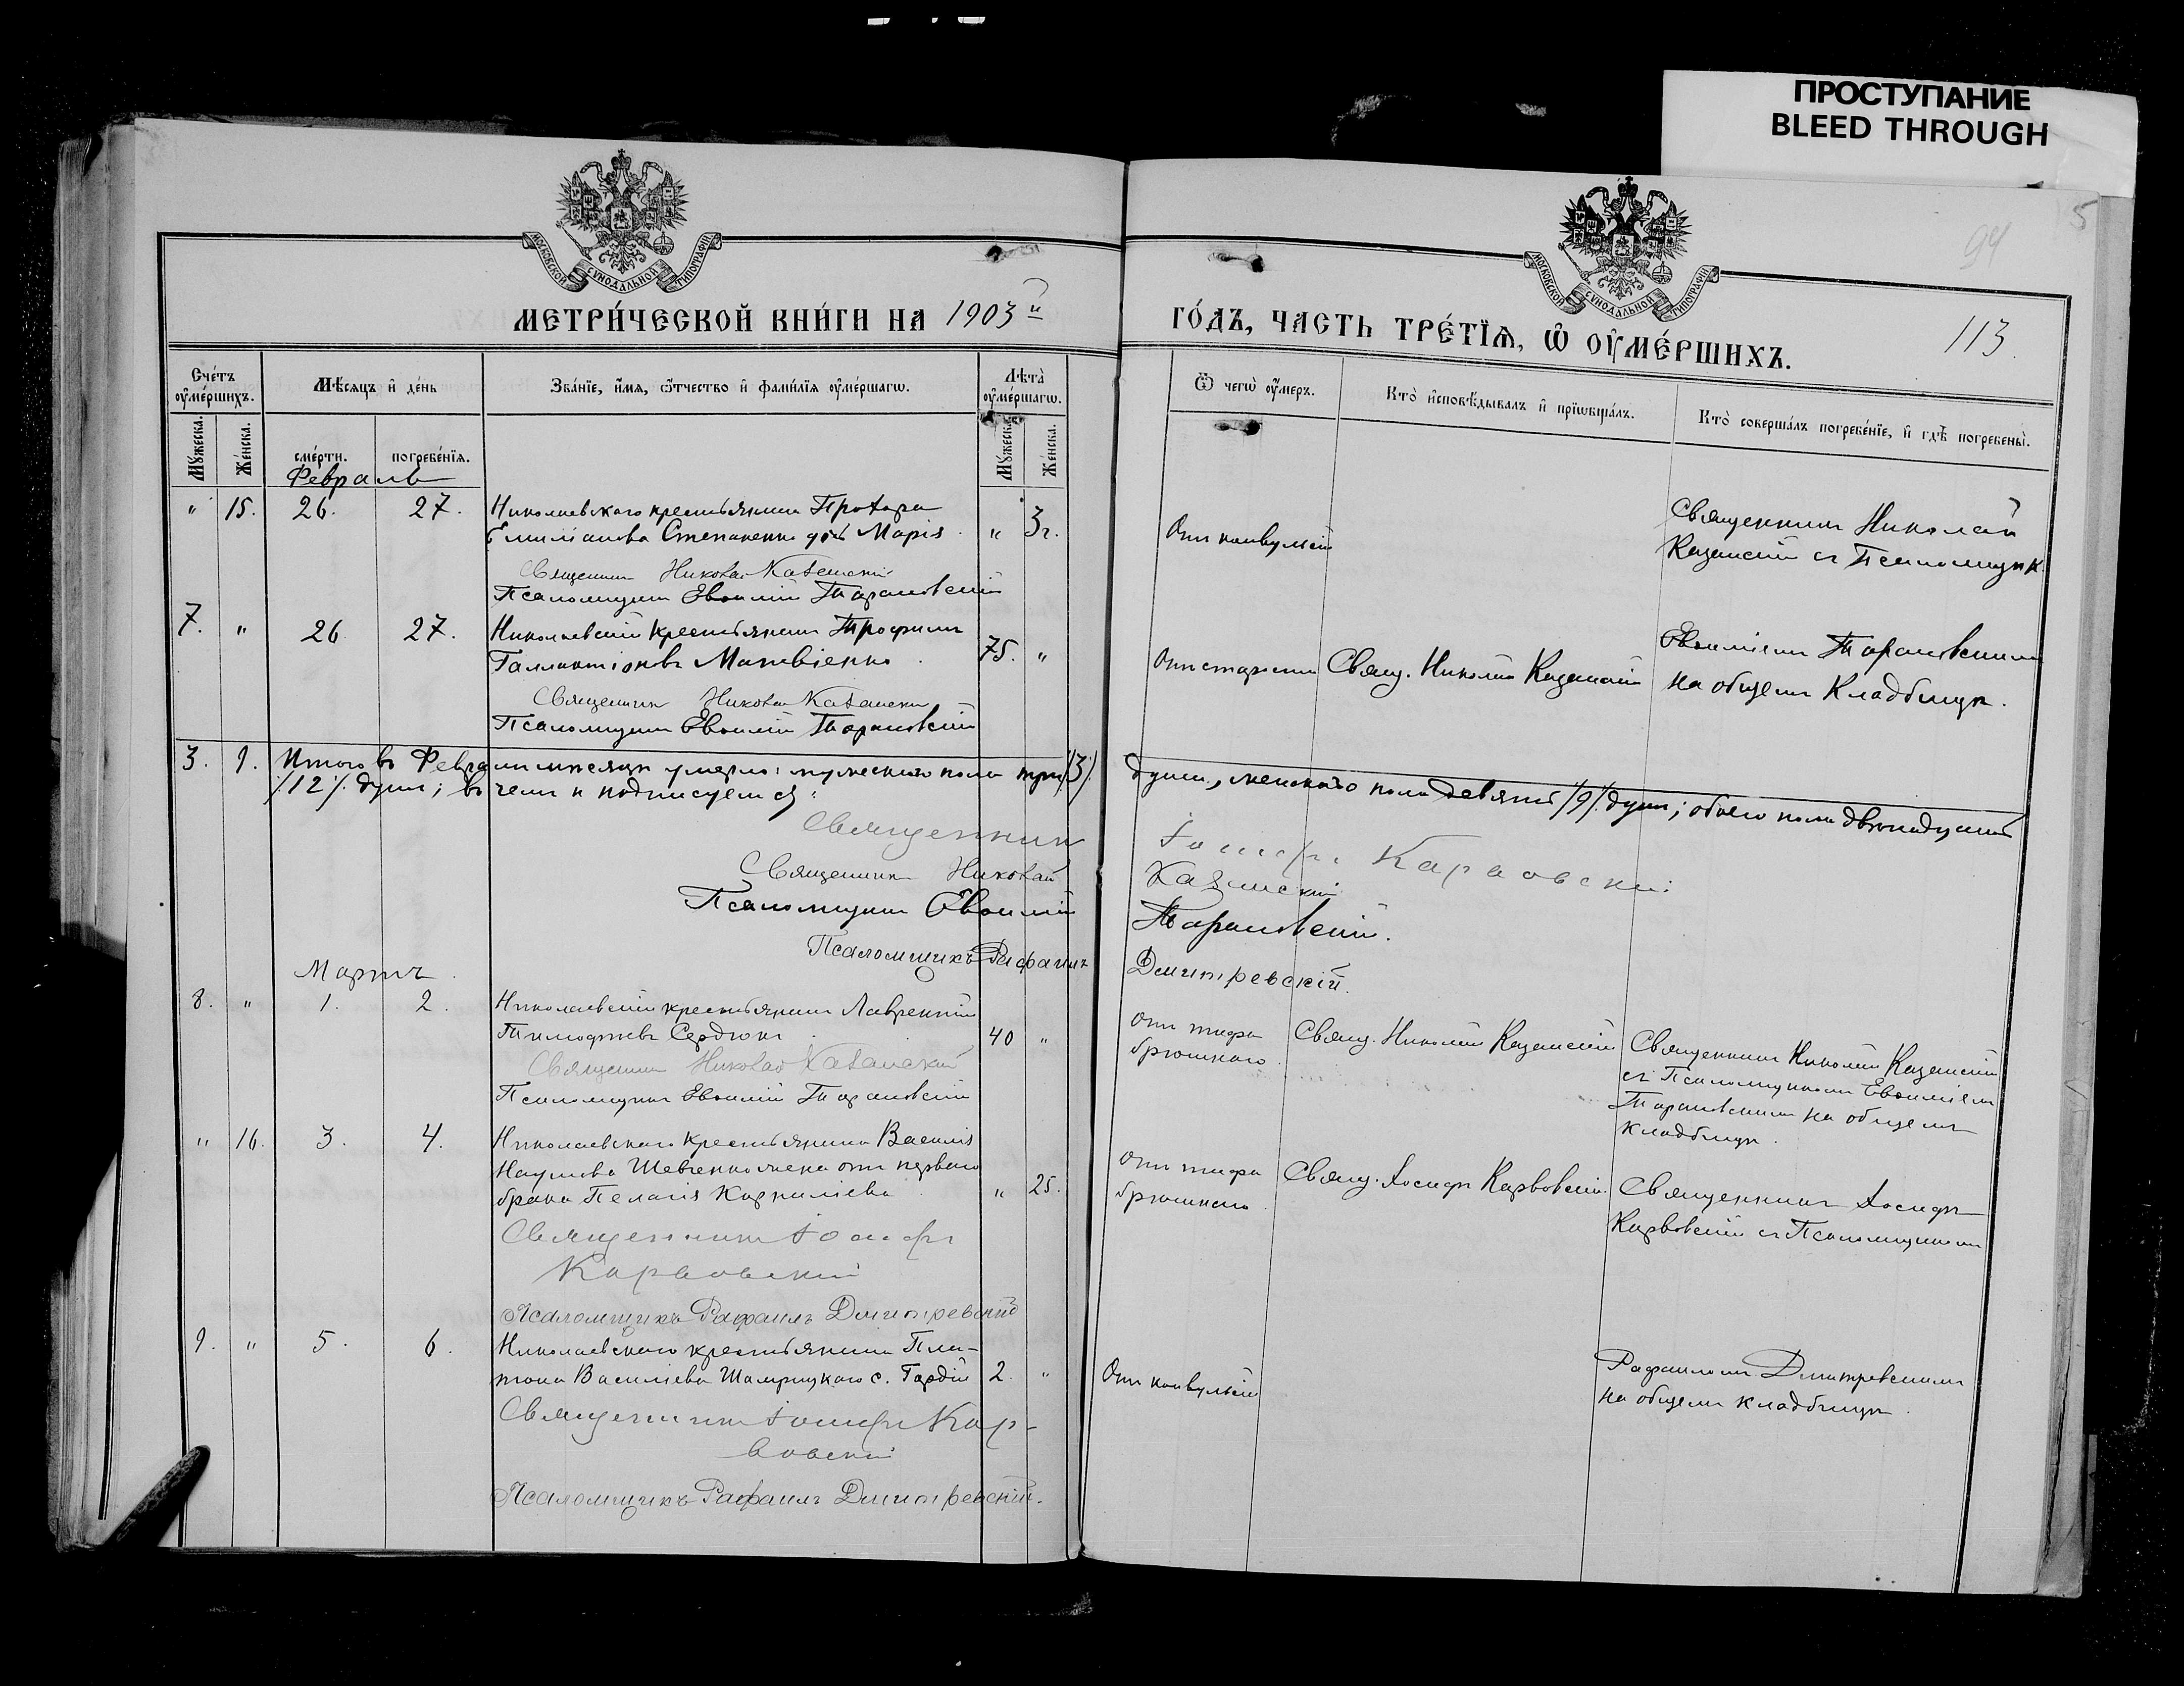 ПРОСТУПАНИЕ
BLEED THROUGH
МОСКОВСКОЙ СѴНОДАЛЬНОЙ ТИПОГРАФІИ
МОСКОВСКОЙ СѴНОДАЛЬНОЙ ТИПОГРАФІИ
94
5
МЕТРИ́ЧЕСКОЙ КНИ́ГИ НА 1903 й
ГО́ДЪ, ЧАСТЬ ТРЕ́ТІѦ, Ѡ ОУМЕ́РШИХЪ.
113.
Сче́тъ оумершихъ.
Мѣсяцъ и де́нь
Зва́нїе, имя, ѻтчество и фами́лїя оуме́ршагѡ.
Лѣта̀ оуме́ршагѡ.
Ѿ чегѡ̀ оумеръ.
Кто̀ исповѣдывалъ и прїѡбща́лъ.
Кто̀ соверша́лъ погребе́нїе, и гдѣ погребены̀.
Мꙋжеска.
Же́нска.
сме́рти.
погребе́нїя.
Мꙋжеска.
Же́нска.
Февраль
" 15. 26. 27. Николаевского крестьянина Прохора
Емиліанова Степаненко дочь Марія " 3 г.
Священник Николай Казанскій
Псаломщикъ Евѳимій Тарановскій
Отъ конвульсій
Священникъ Николай
Казанскій съ Псаломщик
7. " 26. 27. Николаевскій крестьянинъ Трофимъ
Галактіоновъ Матвіенко 75. "
Священникъ Николай Казанскій
Псаломщикъ Евѳимій Тарановскій
Отъ старости Свящ. Николай Казанскій
Евѳиміемъ Тарановскимъ
на общемъ Кладбищѣ.
3. 9. Итого въ Февралѣ мѣсяцѣ умерло: мужескаго пола три /3/ души, женскаго пола девять /9/ душъ; обоего пола двѣнадцать
/12/ душъ; въ чемъ и подписуемся:
Священникъ Іосифъ Карвовскій
Священникъ Николай Казанскій
Псаломщикъ Евѳимій Тарановскій.
Псаломщикъ Рафаилъ Дмитревскій.
Мартъ.
8. " 1. 2. Николаевскій крестьянинъ Лаврентій
Тимофѣевъ Сердюкъ 40 "
Священникъ Николай Казанскій
Псаломщикъ Евѳимій Тарановскій
Отъ тифа
брюшного.
Свящ. Николай Казанскій
Священникъ Николай Казанскій
съ Псаломщикомъ Евѳиміемъ
Тарановскимъ на общемъ
кладбищѣ.
" 16. 3. 4. Николаевскаго крестьянина Василія
Наумова Шевченко жена отъ перваго
брака Пелагія Корниліева " 25.
Священникъ Іосифъ
Карвовскій
Псаломщикъ Рафаилъ Дмитревскій
Отъ тифа
брюшного.
Свящ. Іосифъ Карвовскій.
Священникъ Іосифъ
Карвовскій съ Псаломщикомъ
9. " 5. 6. Николаевского крестьянина Пла-
тона Василіева с. Гордій 2. "
Священникъ Іосифъ Кар-
вовскій
Псаломщикъ Рафаилъ Дмитревскій.
Отъ конвульсій
Рафаиломъ Дмитревскимъ
на общемъ кладбищѣ.